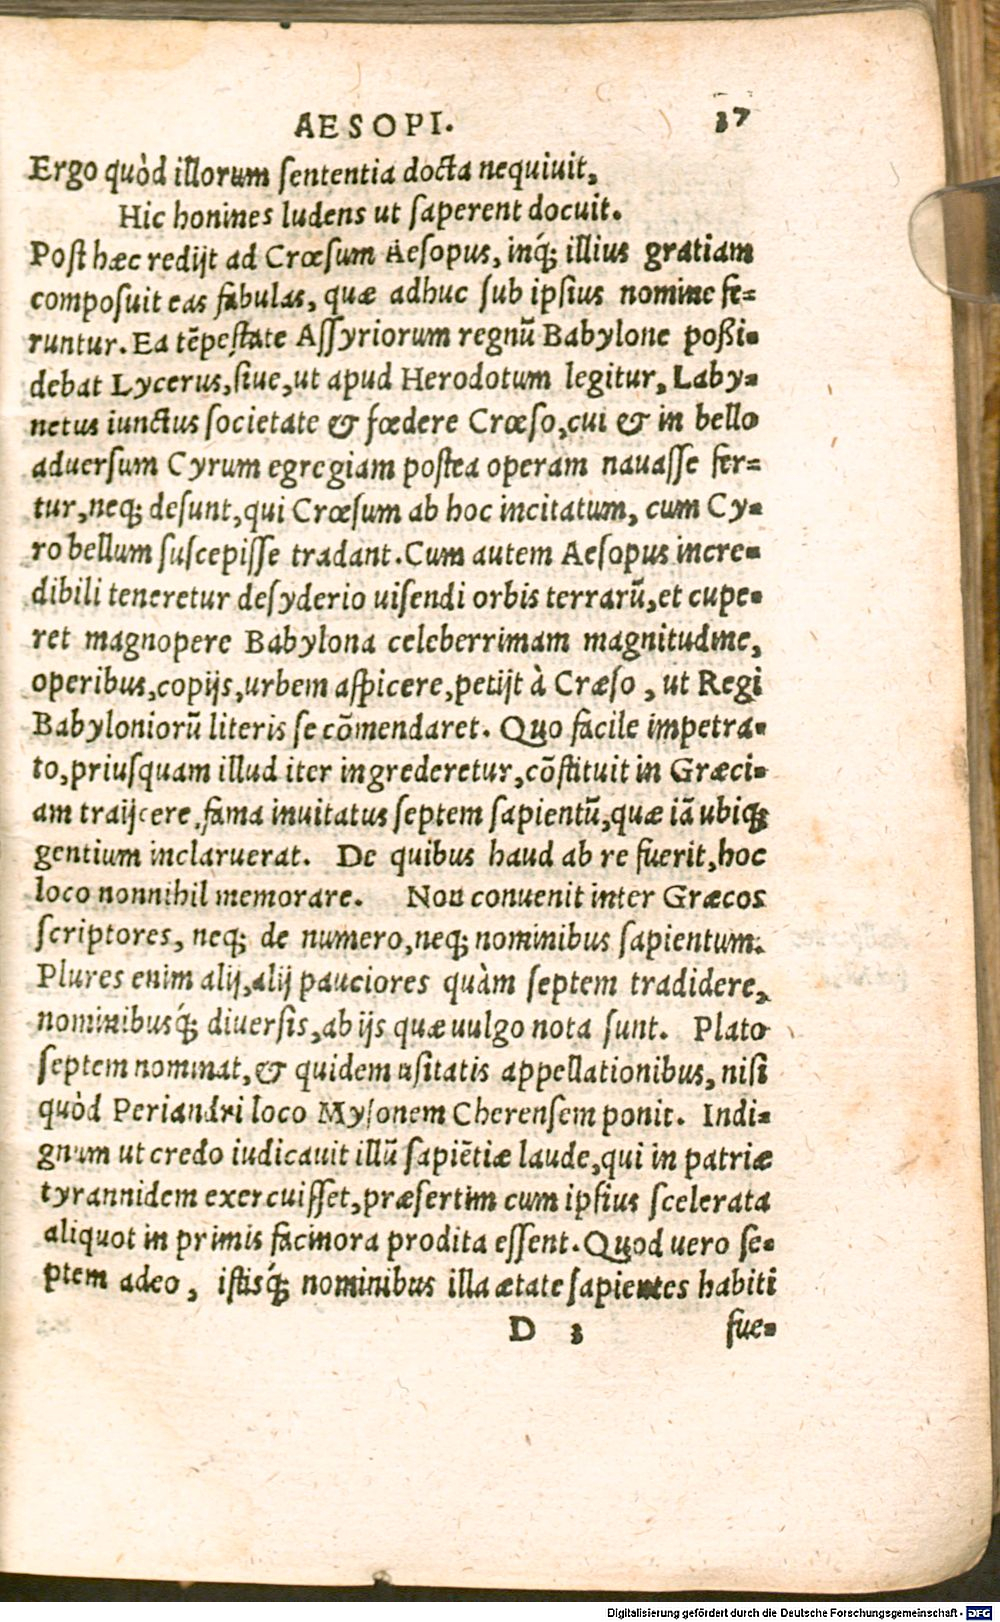 AESOPI. 37
Ergo quòd illorum sententia docta nequiuit,
Hic honines ludens ut saperent docuit.
Post hæc redijt ad Crœsum Aesopus, inq́; illius gratiam
composuit eas fabulas, quæ adhuc sub ipsius nomine fe-
runtur. Ea tẽpestate Assyriorum regnũ Babylone poßi-
debat Lycerus, siue, ut apud Herodotum legitur, Laby-
netus iunctus societate & fœdere Crœso, cui & in bello
aduersum Cyrum egregiam postea operam nauasse fer-
tur, neq; desunt, qui Crœsum ab hoc incitatum, cum Cy-
ro bellum suscepisse tradant. Cum autem Aesopus incre-
dibili teneretur desyderio uisendi orbis terrarũ, et cupe-
ret magnopere Babylona celeberrimam magnitudine,
operibus, copijs, urbem aspicere, petijt à Cræso, ut Regi
Babyloniorũ literis se cõmendaret. Quo facile impetra-
to, priusquam illud iter ingrederetur, cõstituit in Græci-
am traijcere, fama inuitatus septem sapientũ, quæ iã ubiq;
gentium inclaruerat. De quibus haud ab re fuerit, hoc
loco nonnihil memorare. Non conuenit inter Græcos
scriptores, neq; de numero, neq; nominibus sapientum.
Plures enim alij, alij pauciores quàm septem tradidere,
nominibusq́; diuersis, ab ijs quæ uulgo nota sunt. Plato
septem nominat, & quidem usitatis appellationibus, nisi
quòd Periandri loco Mysonem Cherensem ponit. Indi-
gnum ut credo iudicauit illũ sapiẽtiæ laude, qui in patriæ
tyrannidem exercuisset, præsertim cum ipsius scelerata
aliquot in primis facinora prodita essent. Quod uero se-
ptem adeo, istisq́; nominibus illa ætate sapientes habiti
D 3 fue-
Digitalisierung gefördert durch die Deutsche Forschungsgemeinschaft - DFG